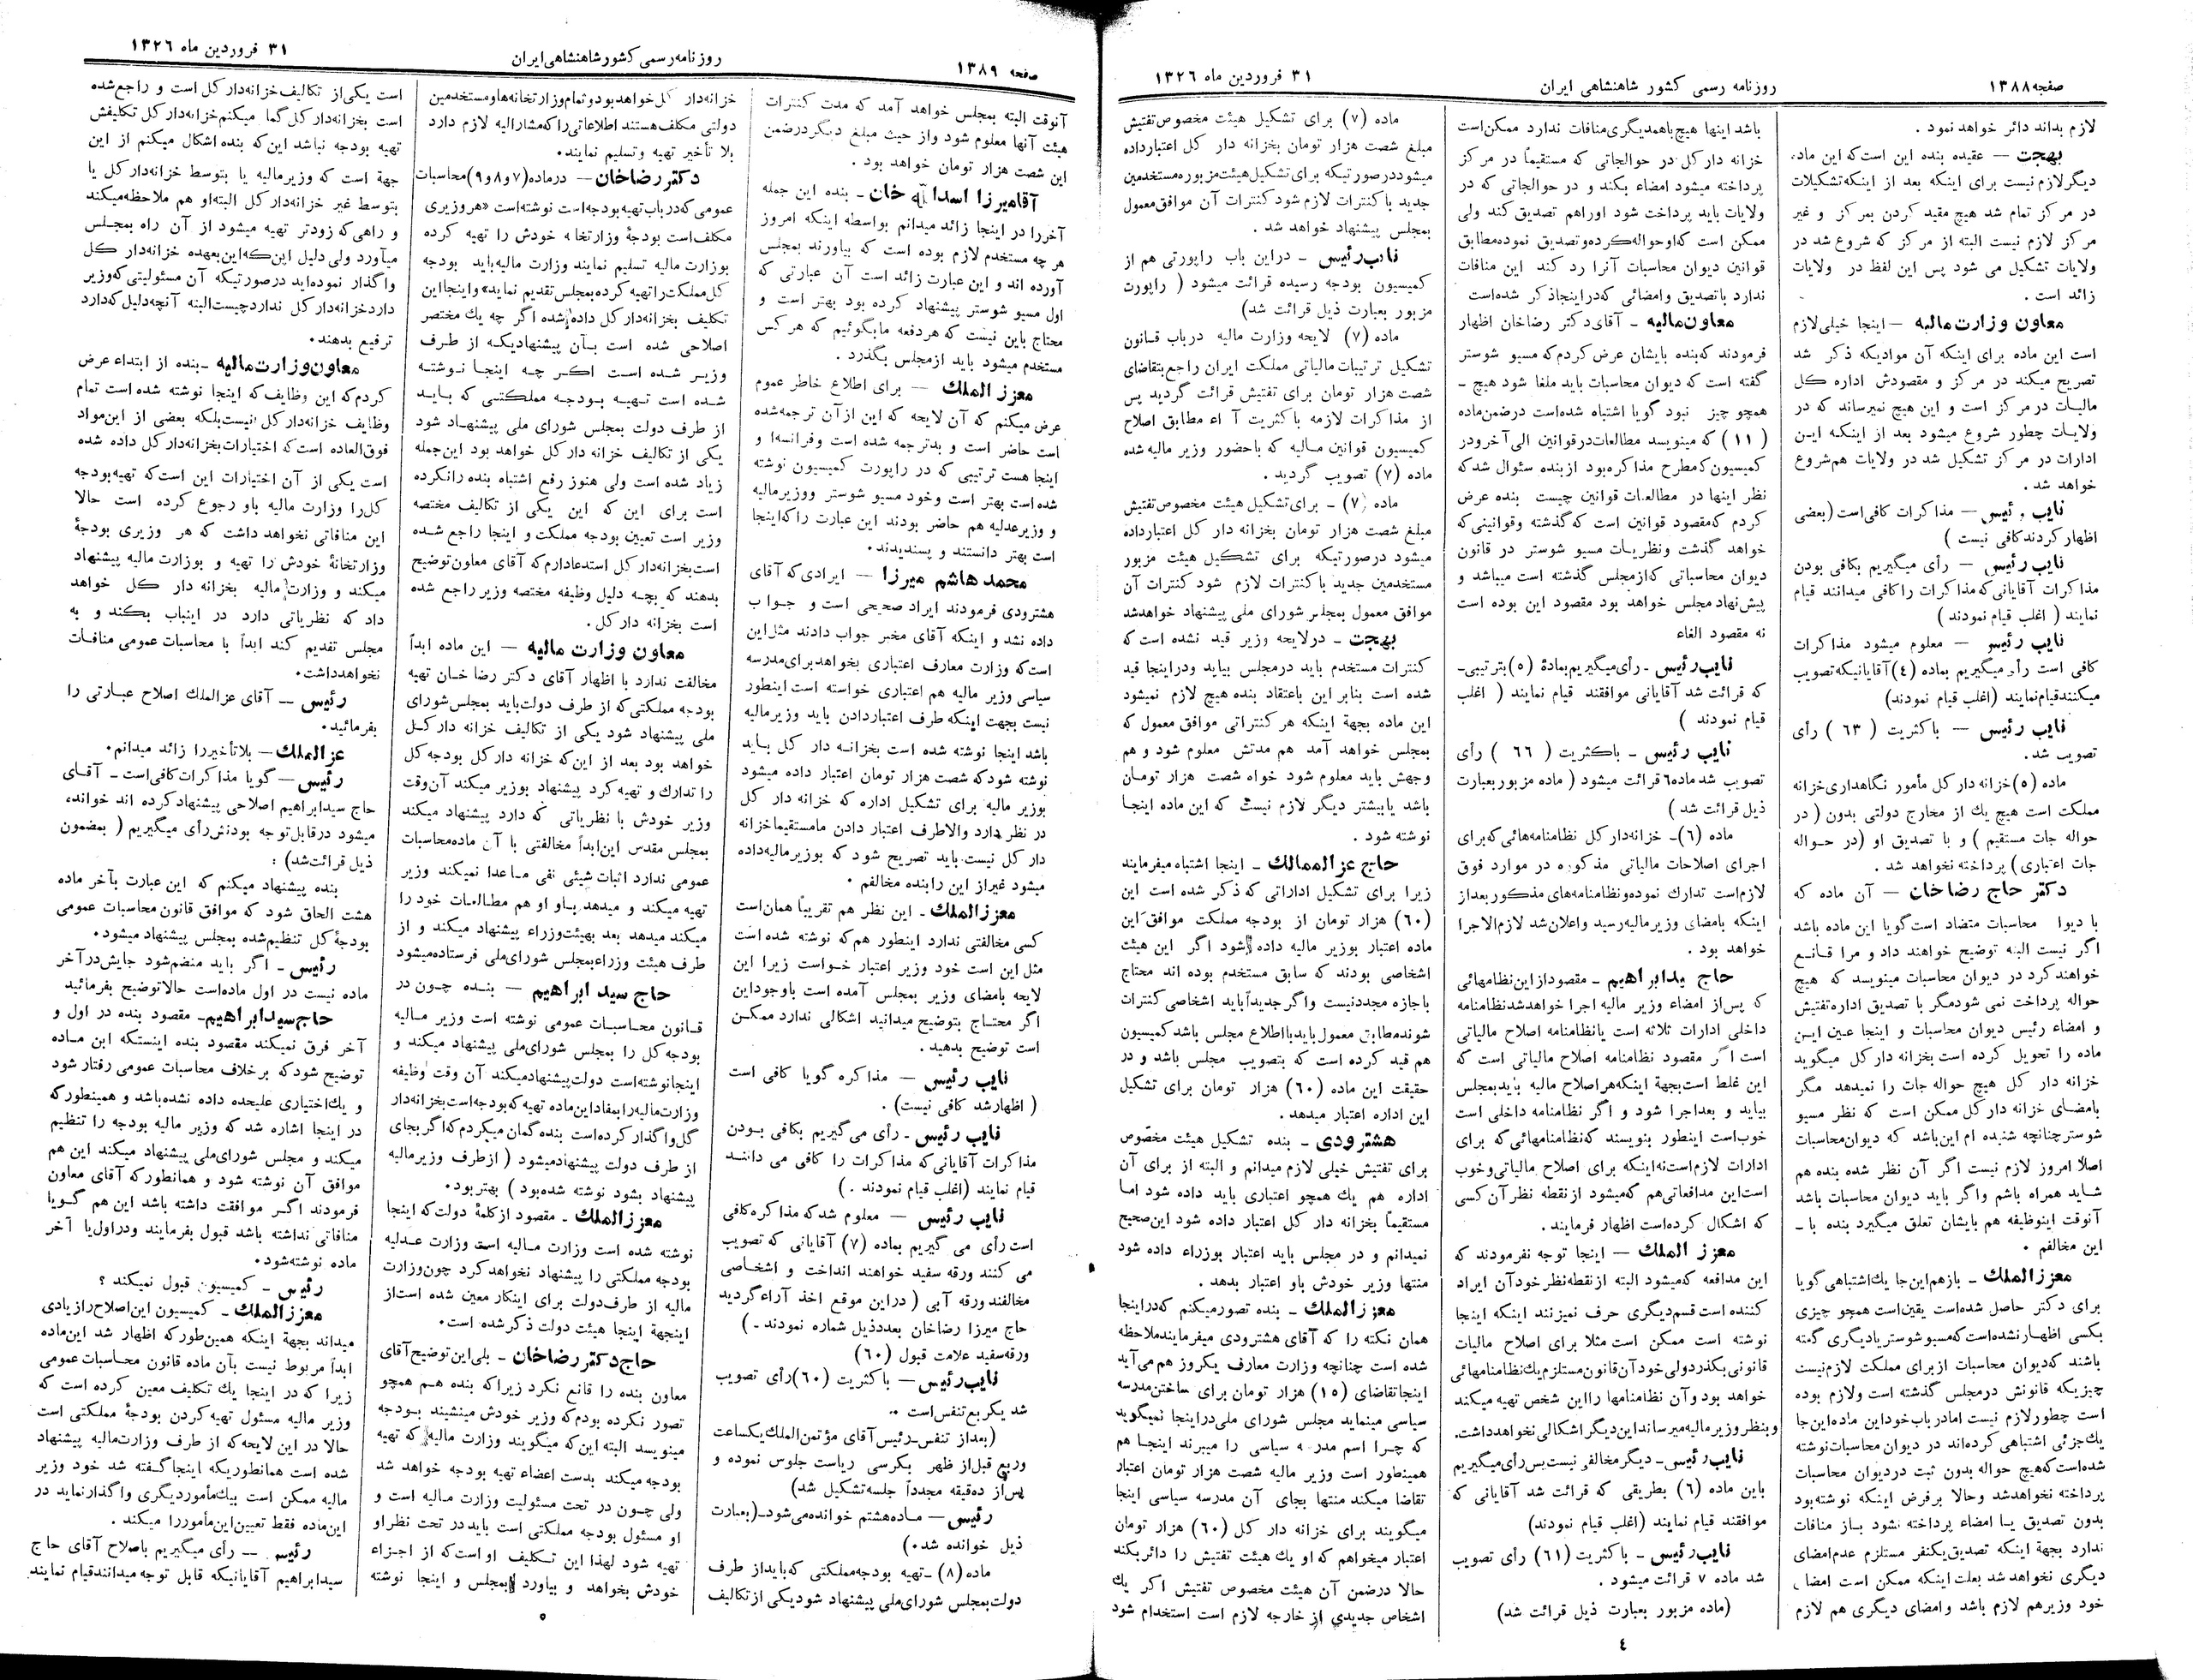 صفحه ۱۳۸۸
روزنامه رسمی کشور شاهنشاهی ایران
۳۱ فروردین ماه ۱۳۲۶
لازم بداند دائر خواهد نمود .
بهجت — عقیده بنده این است که این ماده
دیگر لازم نیست برای اینکه بعد از اینکه تشکیلات
در مرکز تمام شد هیچ مقید کردن بمرکز و غیر
مرکز لازم نیست البته از مرکز که شروع شد در
ولایات تشکیل می شود پس این لفظ در ولایات
زائد است .
معاون وزارت مالیه — اینجا خیلی لازم
است این ماده برای اینکه آن موادیکه ذکر شد
تصریح میکند در مرکز و مقصودش اداره کل
مالیات در مرکز است و این هیچ نمیرساند که در
ولایات چطور شروع میشود بعد از اینکه این
ادارات در مرکز تشکیل شد در ولایات هم شروع
خواهد شد .
نایب رئیس — مذاکرات کافی است (بعضی
اظهار کردند کافی نیست )
نایب رئیس — رأی میگیریم بکافی بودن
مذاکرات آقایانی که مذاکرات را کافی میدانند قیام
نمایند ( اغلب قیام نمودند )
نایب رئیس — معلوم میشود مذاکرات
کافی است رأی میگیریم بماده (٤) آقایانیکه تصویب
میکنند قیام نمایند (اغلب قیام نمودند)
نایب رئیس — باکثریت ( ٦٣ ) رأی
تصویب شد.
ماده (٥) خزانه دار کل مأمور نگاهداری خزانه
مملکت است هیچ یك از مخارج دولتی بدون ( در
حواله جات مستقیم ) و با تصدیق او (در حواله
جات اعتباری) پرداخته نخواهد شد .
دکتر حاج رضاخان — آن ماده که
با دیوان محاسبات متضاد است گویا این ماده باشد
اگر نیست البته توضیح خواهند داد و مرا قانع
خواهند کرد در دیوان محاسبات مینویسد که هیچ
حواله پرداخت نمی شود مگر با تصدیق اداره تفتیش
و امضاء رئیس دیوان محاسبات و اینجا عین این
ماده را تحویل کرده است بخزانه دار کل میگوید
خزانه دار کل هیچ حواله جات را نمیدهد مگر
بامضای خزانه دار کل ممکن است که نظر مسیو
شوستر چنانچه شنیده ام این باشد که دیوان محاسبات
اصلا امروز لازم نیست اگر آن نظر شده بنده هم
شاید همراه باشم و اگر باید دیوان محاسبات باشد
آنوقت این وظیفه هم بایشان تعلق میگیرد بنده با -
این مخالفم .
معزز الملك - باز هم این جا یك اشتباهی گویا
برای دکتر حاصل شده است یقین است همچو چیزی
بکسی اظهار نشده است که مسیو شوستر یا دیگری گفته
باشند که دیوان محاسبات از برای مملکت لازم نیست
چیزیکه قانونش در مجلس گذشته است و لازم بوده
است چطور لازم نیست اما در باب خود این ماده این جا
یك جزئی اشتباهی کرده اند در دیوان محاسبات نوشته
شده است که هیچ حواله بدون ثبت در دیوان محاسبات
پرداخته نخواهد شد و حالا بر فرض اینکه نوشته بود
بدون تصدیق یا امضاء پرداخته نشود باز منافات
ندارد بجهة اینکه تصدیق یکنفر مستلزم عدم امضای
دیگری نخواهد شد بعلت اینکه ممکن است امضای
خود وزیر هم لازم باشد و امضای دیگری هم لازم
باشد اینها هیچ با همدیگری منافات ندارد ممکن است
خزانه دار کل در حوالجاتی که مستقیماً در مرکز
پرداخته میشود امضاء بکند و در حوالجاتی که در
ولایات باید پرداخت شود او را هم تصدیق کند ولی
ممکن است که او حواله کرده و تصدیق نموده مطابق
قوانین دیوان محاسبات آنرا رد کند این منافات
ندارد با تصدیق و امضائی که در اینجا ذکر شده است
معاون مالیه - آقای دکتر رضاخان اظهار
فرمودند که بنده بایشان عرض کردم که مسیو شوستر
گفته است که دیوان محاسبات باید ملغا شود هیچ -
همچو چیز نبود گویا اشتباه شده است در ضمن ماده
( ۱۱ ) که مینویسد مطالعات در قوانین الی آخر و در
کمیسیون که مطرح مذاکره بود از بنده سئوال شد که
نظر اینها در مطالعات قوانین چیست بنده عرض
کردم که مقصود قوانین است که گذشته و قوانینی که
خواهد گذشت و نظریات مسیو شوستر در قانون
دیوان محاسباتی که از مجلس گذشته است میباشد و
پیش نهاد مجلس خواهد بود مقصود این بوده است
نه مقصود الغاء
نایب رئیس - رأی میگیریم بماده (٥) بترتیبی -
که قرائت شد آقایانی موافقند قیام نمایند ( اغلب
قیام نمودند )
نایب رئیس - باکثریت ( ٦٦ ) رأی
تصویب شد ماده ٦ قرائت میشود ( ماده مزبور بعبارت
ذیل قرائت شد )
ماده (٦) - خزانه دار کل نظامنامه هائی که برای
اجرای اصلاحات مالیاتی مذکوره در موارد فوق
لازم است تدارك نموده و نظامنامه های مذکور بعد از
اینکه بامضای وزیر مالیه رسید و اعلان شد لازم الاجرا
خواهد بود .
حاج سید ابراهیم - مقصود از این نظامهائی
که پس از امضاء وزیر مالیه اجرا خواهد شد نظامنامه
داخلی ادارات ثلاثه است یا نظامنامه اصلاح مالیاتی
است اگر مقصود نظامنامه اصلاح مالیاتی است که
این غلط است بجهة اینکه هر اصلاح مالیه باید بمجلس
بیاید و بعد اجرا شود و اگر نظامنامه داخلی است
خوب است اینطور بنویسند که نظامنامهائی که برای
ادارات لازم است نه اینکه برای اصلاح مالیاتی و خوب
است این مدافعاتی هم که میشود از نقطه نظر آن کسی
که اشکال کرده است اظهار فرمایند .
معزز الملك — اینجا توجه نفرمودند که
این مدافعه که میشود البته از نقطه نظر خود آن ایراد
کننده است قسم دیگری حرف نمیزنند اینکه اینجا
نوشته است ممکن است مثلا برای اصلاح مالیات
قانونی بگذرد ولی خود آن قانون مستلزم یك نظامنامهائی
خواهد بود و آن نظامنامها را این شخص تهیه میکند
و بنظر وزیر مالیه میرساند این دیگر اشکالی نخواهد داشت.
نایب رئیس - دیگر مخالفی نیست پس رأی میگیریم
باین ماده (٦) بطریقی که قرائت شد آقایانی که
موافقند قیام نمایند (اغلب قیام نمودند)
نایب رئیس - باکثریت (٦١) رأی تصویب
شد ماده ۷ قرائت میشود .
(ماده مزبور بعبارت ذیل قرائت شد)
ماده (۷) برای تشکیل هیئت مخصوص تفتیش
مبلغ شصت هزار تومان بخزانه دار کل اعتبار داده
میشود در صورتیکه برای تشکیل هیئت مزبوره مستخدمین
جدید با کنترات لازم شود کنترات آن موافق معمول
بمجلس پیشنهاد خواهد شد .
نایب رئیس - در این باب راپورتی هم از
کمیسیون بودجه رسیده قرائت میشود ( راپورت
مزبور بعبارت ذیل قرائت شد)
ماده (۷) لایحه وزارت مالیه در باب قانون
تشکیل ترتیبات مالیاتی مملکت ایران راجع بتقاضای
شصت هزار تومان برای تفتیش قرائت گردید پس
از مذاکرات لازمه باکثریت آراء مطابق اصلاح
کمیسیون قوانین مالیه که با حضور وزیر مالیه شده
ماده (۷) تصویب گردید .
ماده (۷) - برای تشکیل هیئت مخصوص تفتیش
مبلغ شصت هزار تومان بخزانه دار کل اعتبار داده
میشود در صورتیکه برای تشکیل هیئت مزبور
مستخدمین جدید با کنترات لازم شود کنترات آن
موافق معمول بمجلس شورای ملی پیشنهاد خواهد شد
بهجت - در لایحه وزیر قید نشده است که
کنترات مستخدم باید در مجلس بیاید و در اینجا قید
شده است بنابر این باعتقاد بنده هیچ لازم نمیشود
این ماده بجهة اینکه هر کنتراتی موافق معمول که
بمجلس خواهد آمد هم مدتش معلوم شود و هم
وجهش باید معلوم شود خواه شصت هزار تومان
باشد یا بیشتر دیگر لازم نیست که این ماده اینجا
نوشته شود .
حاج عز الممالك - اینجا اشتباه میفرمایند
زیرا برای تشکیل اداراتی که ذکر شده است این
(٦٠) هزار تومان از بودجه مملکت موافق این
ماده اعتبار بوزیر مالیه داده شود اگر این هیئت
اشخاصی بودند که سابق مستخدم بوده اند محتاج
باجازه مجدد نیست و اگر جدیداً باید اشخاصی کنترات
شوند مطابق معمول باید با اطلاع مجلس باشد کمیسیون
هم قید کرده است که بتصویب مجلس باشد و در
حقیقت این ماده (٦٠) هزار تومان برای تشکیل
این اداره اعتبار میدهد .
هشترودی - بنده تشکیل هیئت مخصوص
برای تفتیش خیلی لازم میدانم و البته از برای آن
اداره هم یك همچو اعتباری باید داده شود اما
مستقیماً بخزانه دار کل اعتبار داده شود این صحیح
نمیدانم و در مجلس باید اعتبار بوزراء داده شود
منتها وزیر خودش باو اعتبار بدهد .
معزز الملك - بنده تصور میکنم که در اینجا
همان نکته را که آقای هشترودی میفرمایند ملاحظه
شده است چنانچه وزارت معارف یکروز هم می آید
اینجا تقاضای (١٥) هزار تومان برای ساختن مدرسه
سیاسی مینماید مجلس شورای ملی در اینجا نمیگوید
که چرا اسم مدرسه سیاسی را میبرند اینجا هم
همینطور است وزیر مالیه شصت هزار تومان اعتبار
تقاضا میکند منتها بجای آن مدرسه سیاسی اینجا
میگویند برای خزانه دار کل (٦٠) هزار تومان
اعتبار میخواهم که او یك هیئت تفتیش را دائر بکند
حالا در ضمن آن هیئت مخصوص تفتیش اگر یك
اشخاص جدیدی از خارجه لازم است استخدام شود
٤
صفحه ۱۳۸۹
روزنامه رسمی کشور شاهنشاهی ایران
۳۱ فروردین ماه ۱۳۲٦
آنوقت البته بمجلس خواهد آمد که مدت کنترات
هیئت آنها معلوم شود و از حیث مبلغ دیگر در ضمن
این شصت هزار تومان خواهد بود .
آقا میرزا اسدالله خان - بنده این جمله
آخر را در اینجا زائد میدانم بواسطه اینکه امروز
هر چه مستخدم لازم بوده است که بیاورند بمجلس
آورده اند و این عبارت زائد است آن عبارتی که
اول مسیو شوستر پیشنهاد کرده بود بهتر است و
محتاج باین نیست که هر دفعه ما بگوئیم که هر کس
مستخدم میشود باید از مجلس بگذرد .
معزز الملك — برای اطلاع خاطر عموم
عرض میکنم که آن لایحه که این از آن ترجمه شده
است حاضر است و بد ترجمه شده است و فرانسه او
اینجا هست ترتیبی که در راپورت کمیسیون نوشته
شده است بهتر است و خود مسیو شوستر و وزیر مالیه
و وزیر عدلیه هم حاضر بودند این عبارت را که اینجا
است بهتر دانستند و پسندیدند.
محمد هاشم میرزا — ایرادی که آقای
هشترودی فرمودند ایراد صحیحی است و جواب
داده نشد و اینکه آقای مخبر جواب دادند مثل این
است که وزارت معارف اعتباری بخواهد برای مدرسه
سیاسی وزیر مالیه هم اعتباری خواسته است اینطور
نیست بجهت اینکه طرف اعتبار دادن باید وزیر مالیه
باشد اینجا نوشته شده است بخزانه دار کل باید
نوشته شود که شصت هزار تومان اعتبار داده میشود
بوزیر مالیه برای تشکیل اداره که خزانه دار کل
در نظر دارد والا طرف اعتبار دادن ما مستقیما خزانه
دار کل نیست باید تصریح شود که بوزیر مالیه داده
میشود غیر از این را بنده مخالفم .
معزز الملك - این نظر هم تقریباً همان است
کسی مخالفتی ندارد اینطور هم که نوشته شده است
مثل این است خود وزیر اعتبار خواست زیرا این
لایحه بامضای وزیر بمجلس آمده است با وجود این
اگر محتاج بتوضیح میدانید اشکالی ندارد ممکن
است توضیح بدهید .
نایب رئیس — مذاکره گویا کافی است
( اظهار شد کافی نیست) .
نایب رئیس - رأی می گیریم بکافی بودن
مذاکرات آقایانی که مذاکرات را کافی می دانند
قیام نمایند (اغلب قیام نمودند . )
نایب رئیس — معلوم شد که مذاکره کافی
است رأی می گیریم بماده (۷) آقایانی که تصویب
می کنند ورقه سفید خواهند انداخت و اشخاصی
مخالفند ورقه آبی ( در این موقع اخذ آراء گردید
حاج میرزا رضاخان بعدد ذیل شماره نمودند - )
ورقه سفید علامت قبول (٦٠)
نایب رئیس — باکثریت (٦٠) رأی تصویب
شد یکربع تنفس است .
(بعد از تنفس - رئیس آقای مؤتمن الملك یکساعت
و ربع قبل از ظهر بکرسی ریاست جلوس نموده و
پس از ده دقیقه مجدداً جلسه تشکیل شد)
رئیس — ماده هشتم خوانده می شود - (بعبارت
ذیل خوانده شد.)
ماده (٨) - تهیه بودجه مملکتی که باید از طرف
دولت بمجلس شورای ملی پیشنهاد شود یکی از تکالیف
خزانه دار کل خواهد بود و تمام وزارتخانه ها و مستخدمین
دولتی مکلف هستند اطلاعاتی را که مشارالیه لازم دارد
بلا تأخیر تهیه و تسلیم نمایند.
دکتر رضاخان — در ماده (۷ و ۸ و ۹) محاسبات
عمومی که در باب تهیه بودجه است نوشته است «هر وزیری
مکلف است بودجهٔ وزارتخانه خودش را تهیه کرده
بوزارت مالیه تسلیم نمایند وزارت مالیه باید بودجه
کل مملکت را تهیه کرده بمجلس تقدیم نماید» و اینجا این
تکلیف بخزانه دار کل داده شده اگر چه یك مختصر
اصلاحی شده است بآن پیشنهادیکه از طرف
وزیر شده است اگر چه اینجا نوشته
شده است تهیه بودجه مملکتی که باید
از طرف دولت بمجلس شورای ملی پیشنهاد شود
یکی از تکالیف خزانه دار کل خواهد بود این جمله
زیاد شده است ولی هنوز رفع اشتباه بنده را نکرده
است برای این که این یکی از تکالیف مختصه
وزیر است تعیین بودجه مملکت و اینجا راجع شده
است بخزانه دار کل استدعا دارم که آقای معاون توضیح
بدهند که بچه دلیل وظیفه مختصه وزیر راجع شده
است بخزانه دار کل .
معاون وزارت مالیه — این ماده ابداً
مخالفت ندارد با اظهار آقای دکتر رضا خان تهیه
بودجه مملکتی که از طرف دولت باید بمجلس شورای
ملی پیشنهاد شود یکی از تکالیف خزانه دار کل
خواهد بود بعد از این که خزانه دار کل بودجه کل
را تدارك و تهیه کرد پیشنهاد بوزیر میکند آن وقت
وزیر خودش با نظریاتی که دارد پیشنهاد میکند
بمجلس مقدس این ابداً مخالفتی با آن ماده محاسبات
عمومی ندارد اثبات شیئی نفی ما عدا نمیکند وزیر
تهیه میکند و میدهد باو او هم مطالعات خود را
میکند میدهد بعد بهیئت وزراء پیشنهاد میکند و از
طرف هیئت وزراء بمجلس شورای ملی فرستاده میشود
حاج سید ابراهیم — بنده چون در
قانون محاسبات عمومی نوشته است وزیر مالیه
بودجه کل را بمجلس شورای ملی پیشنهاد میکند و
اینجا نوشته است دولت پیشنهاد میکند آن وقت وظیفه
وزارت مالیه را بمفاد این ماده تهیه که بودجه است بخزانه دار
کل واگذار کرده است بنده گمان میکردم که اگر بجای
از طرف دولت پیشنهاد میشود ( از طرف وزیر مالیه
پیشنهاد بشود نوشته شده بود ) بهتر بود.
معزز الملك - مقصود از کلمهٔ دولت که اینجا
نوشته شده است وزارت مالیه است وزارت عدلیه
بودجه مملکتی را پیشنهاد نخواهد کرد چون وزارت
مالیه از طرف دولت برای اینکار معین شده است از
اینجهة اینجا هیئت دولت ذکر شده است.
حاج دکتر رضاخان - بلی این توضیح آقای
معاون بنده را قانع نکرد زیرا که بنده هم همچو
تصور نکرده بودم که وزیر خودش مینشیند بودجه
مینویسد البته این که میگویند وزارت مالیه که تهیه
بودجه میکند بدست اعضاء تهیه بودجه خواهد شد
ولی چون در تحت مسئولیت وزارت مالیه است و
او مسئول بودجه مملکتی است باید در تحت نظر او
تهیه شود لهذا این تکلیف او است که از اجزاء
خودش بخواهد و بیاورد بمجلس و اینجا نوشته
است یکی از تکالیف خزانه دار کل است و راجع شده
است بخزانه دار کل گمان میکنم خزانه دار کل تکلیفش
تهیه بودجه نباشد این که بنده اشکال میکنم از این
جهة است که وزیر مالیه یا بتوسط خزانه دار کل یا
بتوسط غیر خزانه دار کل البته او هم ملاحظه میکند
و راهی که زودتر تهیه میشود از آن راه بمجلس
میآورد ولی دلیل این که این بعهده خزانه دار کل
واگذار نموده اید در صورتیکه آن مسئولیتی که وزیر
دارد خزانه دار کل ندارد چیست البته آنچه دلیل که دارد
ترفیع بدهند.
معاون وزارت مالیه - بنده از ابتداء عرض
کردم که این وظایف که اینجا نوشته شده است تمام
وظایف خزانه دار کل نیست بلکه بعضی از این مواد
فوق العاده است که اختیارات بخزانه دار کل داده شده
است یکی از آن اختیارات این است که تهیه بودجه
کل را وزارت مالیه باو رجوع کرده است حالا
این منافاتی نخواهد داشت که هر وزیری بودجهٔ
وزارتخانهٔ خودش را تهیه و بوزارت مالیه پیشنهاد
میکند و وزارت مالیه بخزانه دار کل خواهد
داد که نظریاتی دارد در اینباب بکند و به
مجلس تقدیم کند ابداً با محاسبات عمومی منافات
نخواهد داشت.
رئیس — آقای عز الملك اصلاح عبارتی را
بفرمائید.
عز الملك — بلا تأخیر را زائد میدانم.
رئیس — گویا مذاکرات کافی است - آقای
حاج سید ابراهیم اصلاحی پیشنهاد کرده اند خوانده
میشود در قابل توجه بودنش رأی میگیریم ( بمضمون
ذیل قرائت شد) :
بنده پیشنهاد میکنم که این عبارت بآخر ماده
هشت الحاق شود که موافق قانون محاسبات عمومی
بودجهٔ کل تنظیم شده بمجلس پیشنهاد میشود.
رئیس - اگر باید منضم شود جایش در آخر
ماده نیست در اول ماده است حالا توضیح بفرمائید
حاج سید ابراهیم - مقصود بنده در اول و
آخر فرق نمیکند مقصود بنده اینستکه این ماده
توضیح شود که بر خلاف محاسبات عمومی رفتار شود
و یك اختیاری علیحده داده نشده باشد و همینطور که
در اینجا اشاره شد که وزیر مالیه بودجه را تنظیم
میکند و مجلس شورای ملی پیشنهاد میکند این هم
موافق آن نوشته شود و همانطور که آقای معاون
فرمودند اگر موافقت داشته باشد این هم گویا
منافاتی نداشته باشد قبول بفرمایند و در اول یا آخر
ماده نوشته شود.
رئیس - کمیسیون قبول نمیکند ؟
معزز الملك - کمیسیون این اصلاح را زیادی
میداند بجهة اینکه همین طور که اظهار شد این ماده
ابداً مربوط نیست بآن ماده قانون محاسبات عمومی
زیرا که در اینجا یك تکلیف معین کرده است که
وزیر مالیه مسئول تهیه کردن بودجهٔ مملکتی است
حالا در این لایحه که از طرف وزارت مالیه پیشنهاد
شده است همانطوریکه اینجا گفته شد خود وزیر
مالیه ممکن است بیك مأمور دیگری واگذار نماید در
این ماده فقط تعیین این مأمور را میکند .
رئیس — رأی میگیریم باصلاح آقای حاج
سید ابراهیم آقایانیکه قابل توجه میدانند قیام نمایند
٥